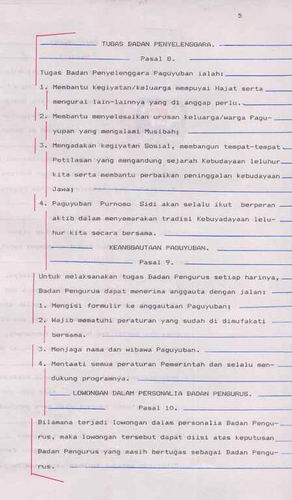 5
TUGAS BADAN PENYELENGGARA.
Pasal 8.
Tugas Badan Penyelenggara Paguyuban ialah:
1. Membantu kegiyatan/keluarga mempuyai Hajat serta
mengurai lain-lainnya yang di anggap perlu.
2. Membantu menyelesaikan urusan keluarga/warga Pagu-
yupan yang mengalami Musibah;
3. Mengadakan kegiyatan Sosial, membangun tempat-tempat
Petilasan yang mengandung sejarah Kebudayaan leluhur
kita serta membantu perbaikan peninggalan kebudayaan
Jawa;
4. Paguyuban Purnomo Sidi akan selalu ikut berperan
aktib dalam menyemarakan tradisi Kebuyadayaan lelu-
hur kita secara bersama.
KEANGGAUTAAN PAGUYUBAN.
Pasal 9.
Untuk melaksanakan tugas Badan Pengurus setiap harinya,
Badan Pengurus dapat menerima anggauta dengan jalan:
1. Mengisi formulir ke anggautaan Paguyuban;
2. Wajib mematuhi peraturan yang sudah di dimufakati
bersama.
3. Menjaga nama dan wibawa Paguyuban.
4. Mentaati semua peraturan Pemerintah dan selalu men-
dukung programnya.
LOWONGAN DALAM PERSONALIA BADAN PENGURUS.
Pasal 10.
Bilamana terjadi lowongan dalam personalia Badan Pengu-
rus, maka lowongan tersebut dapat diisi atas keputusan
Badan Pengurus yang masih bertugas sebagai Badan Pengu-
rus.